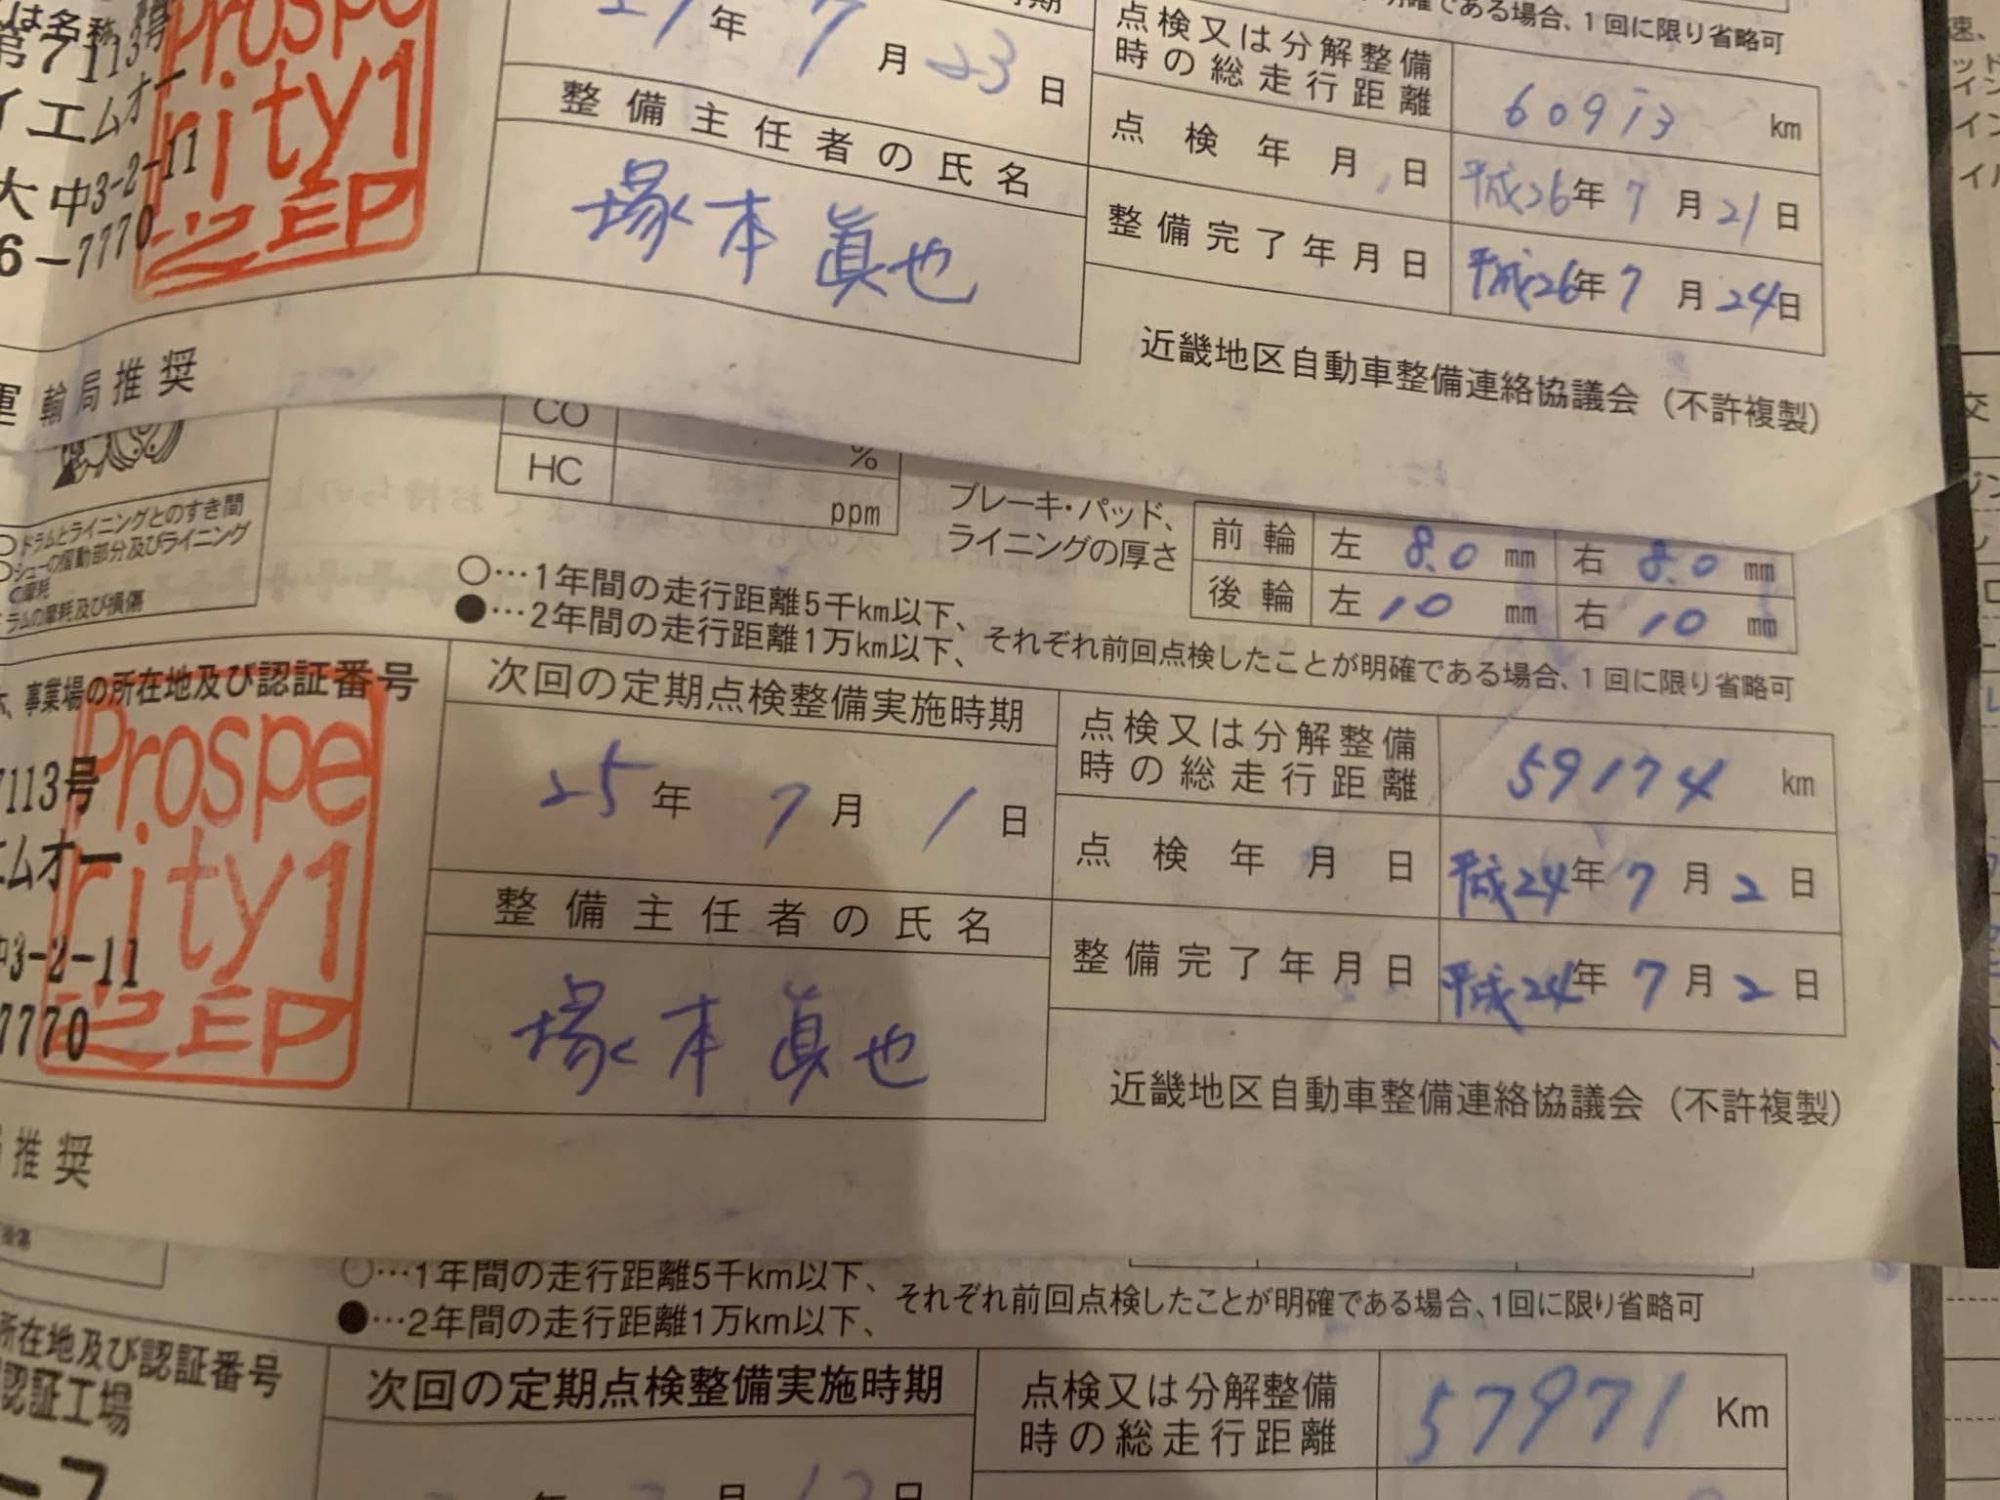 第7113号
イエムオー
大中3-2-11
6-7770
Prospe
rity1
之印
27年7月23日
整備主任者の氏名
塚本眞也
明確である場合、1回に限り省略可
点検又は分解整備
時の総走行距離
60913 km
点検年月日
平成26年7月21日
整備完了年月日
平成26年7月24日
近畿地区自動車整備連絡協議会（不許複製）
輸局推奨
CO
%
HC
ppm
ドラムとライニングとのすき間
シューの摺動部分及びライニング
の摩耗
ラムの摩耗及び損傷
ブレーキ・パッド、
ライニングの厚さ
前輪 左 8.0 mm 右 8.0 mm
後輪 左 10 mm 右 10 mm
○…1年間の走行距離5千km以下、
●…2年間の走行距離1万km以下、
それぞれ前回点検したことが明確である場合、1回に限り省略可
事業場の所在地及び認証番号
7113号
エムオー
中3-2-11
7770
Prospe
rity1
之印
次回の定期点検整備実施時期
25年7月1日
整備主任者の氏名
塚本眞也
点検又は分解整備
時の総走行距離
59174 km
点検年月日
平成24年7月2日
整備完了年月日
平成24年7月2日
近畿地区自動車整備連絡協議会（不許複製）
推奨
○…1年間の走行距離5千km以下、
●…2年間の走行距離1万km以下、
それぞれ前回点検したことが明確である場合、1回に限り省略可
所在地及び認証番号
認証工場
次回の定期点検整備実施時期
点検又は分解整備
時の総走行距離
57971 Km